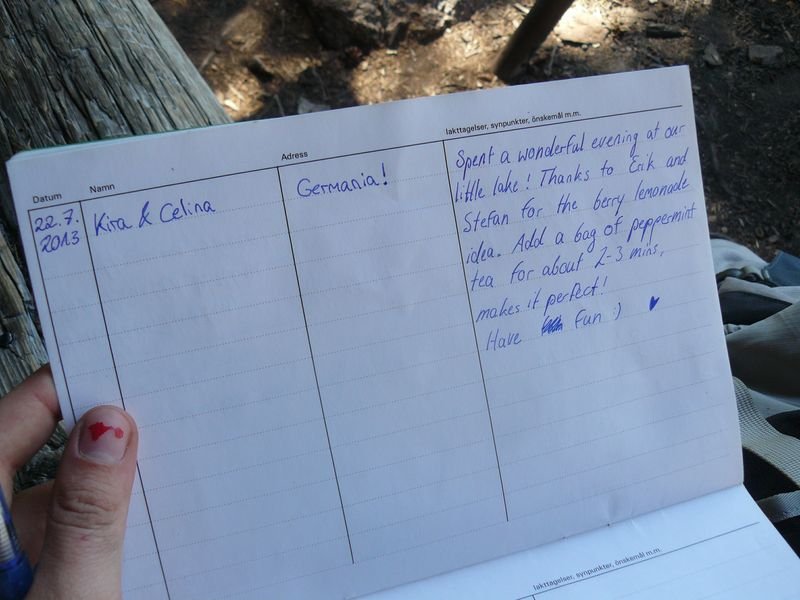 Datum Namn Adress Iakttagelser, synpunkter, önskemål m.m.
22.7.
2013
Kira & Celina
Germania!
Spent a wonderful evening at our
little lake! Thanks to Erik and
Stefan for the berry lemonade
idea. Add a bag of peppermint
tea for about 2-3 mins,
makes it perfect!
Have Fun :) ♥
Iakttagelser, synpunkter, önskemål m.m.